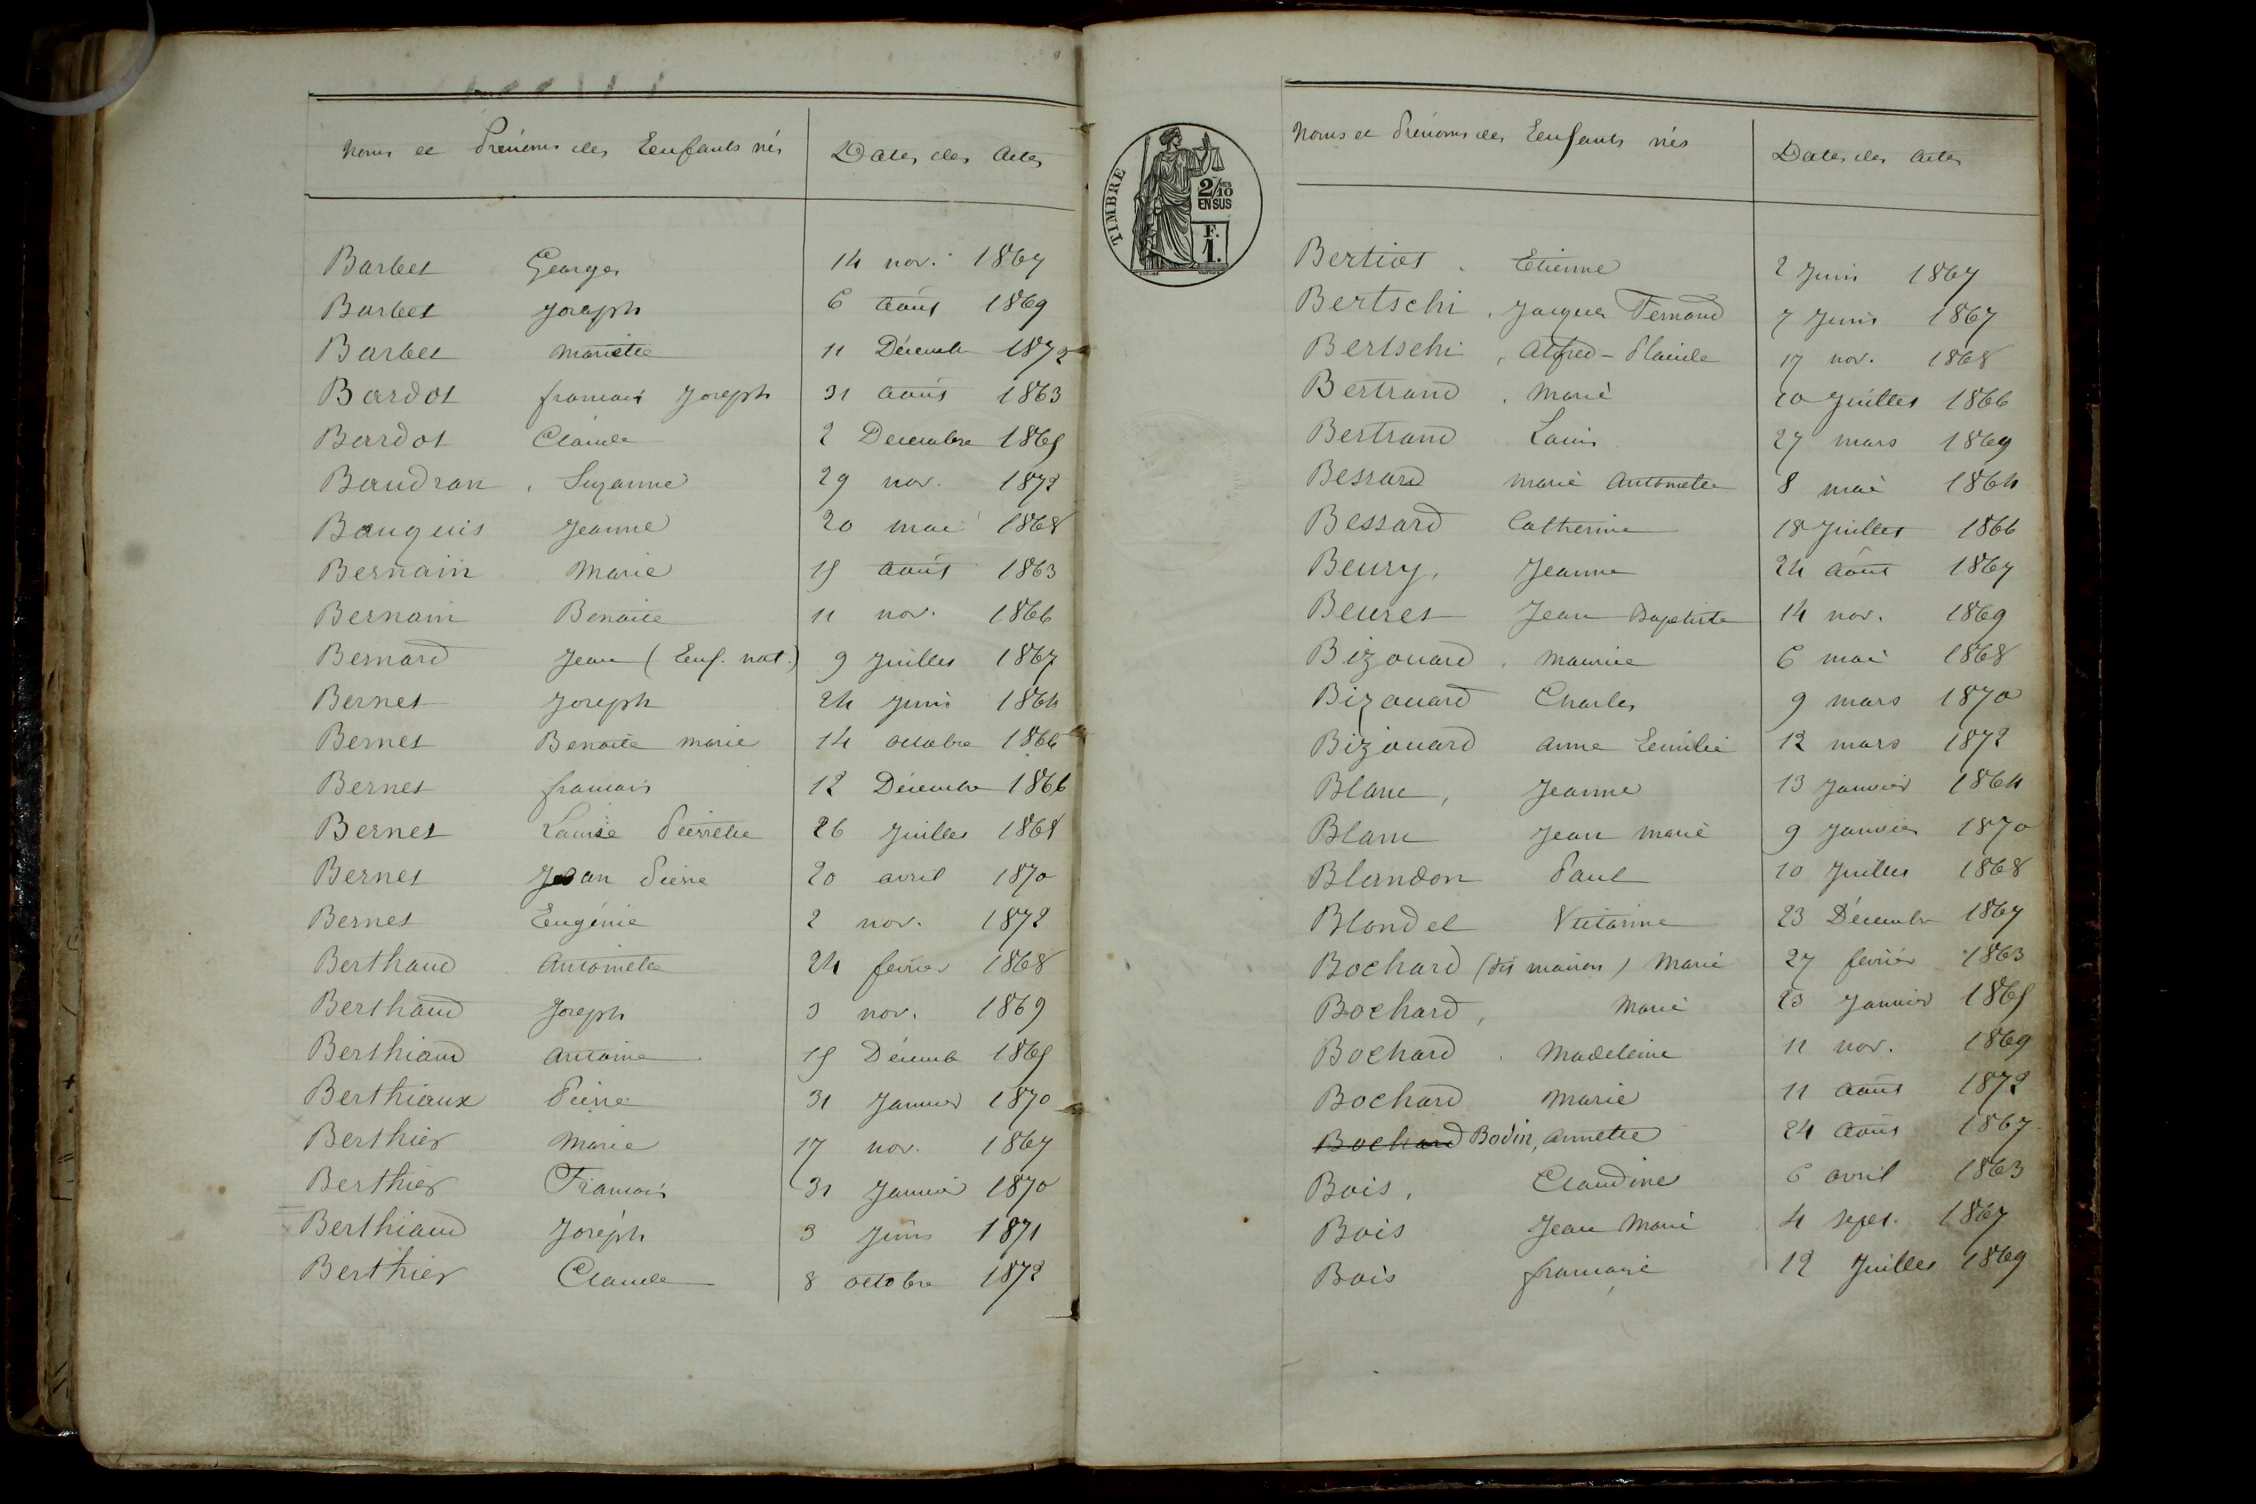 Noms et Prénoms des Enfants nés Dates des Actes
Barbet Georges 14 nov. 1867
Barbet Joseph 6 août 1869
Barbet Mariette 11 Décembre 1872
Bardot françois Joseph 31 août 1863
Bardot Claude 2 Decembre 1865
Baudran, Suzanne 29 nov. 1872
Bauquis Jeanne 20 mai 1868
Bernain Marie 15 août 1863
Bernain Benoite 11 nov. 1866
Bernard Jean (Enf. nat.) 9 Juillet 1867
Bernet Joseph 24 Juin 1864
Bernet Benoite marie 14 octobre 1866
Bernet françois 12 Décembre 1866
Bernet Louise Pierrette 26 Juillet 1868
Bernet Jean Pierre 20 avril 1870
Bernet Eugénie 2 nov. 1872
Berthaud Antoinette 24 fevrier 1868
Berthaud Joseph 3 nov. 1869
Berthiaud antoine 15 Décemb 1865
Berthiaux Pierre 31 Janvier 1870
Berthier Marie 17 nov. 1867
Berthier François 31 Janvier 1870
Berthiaud Joséph 3 Juin 1871
Berthier Claude 8 octobre 1872
TIMBRE
2/10 EN SUS
F. 1.
Noms et Prénoms des Enfants nés Dates des actes
Bertiot. Etienne 2 Juin 1867
Bertschi, Jacques Fernand 7 Juin 1867
Bertschi, Alfred-Placide 17 nov. 1868
Bertrand. Marie 20 Juillet 1866
Bertrand Louis 27 mars 1869
Bessard marie Antoinette 8 mai 1864
Bessard Catherine 18 Juillet 1866
Beury, Jeanne 24 août 1867
Beuret Jean Baptiste 14 nov. 1869
Bizouard. maurice 6 mai 1868
Bizouard Charles 9 mars 1870
Bizouard anne Emilie 12 mars 1872
Blanc, Jeanne 13 Janvier 1864
Blanc Jean marie 9 Janvier 1870
Blandon Paul 10 Juillet 1868
Blondel Victorine 23 Décembre 1867
Bochard (dit mairon) Marie 27 fevrier 1863
Bochard, Marie 23 Janvier 1865
Bochard. Madeleine 11 nov. 1869
Bochard Marie 11 août 1872
Bochard Bodin, annette 24 août 1867
Bois, Claudine 6 avril 1863
Bois Jean Marie 4 sept. 1867
Bois françoise 12 Juillet 1869